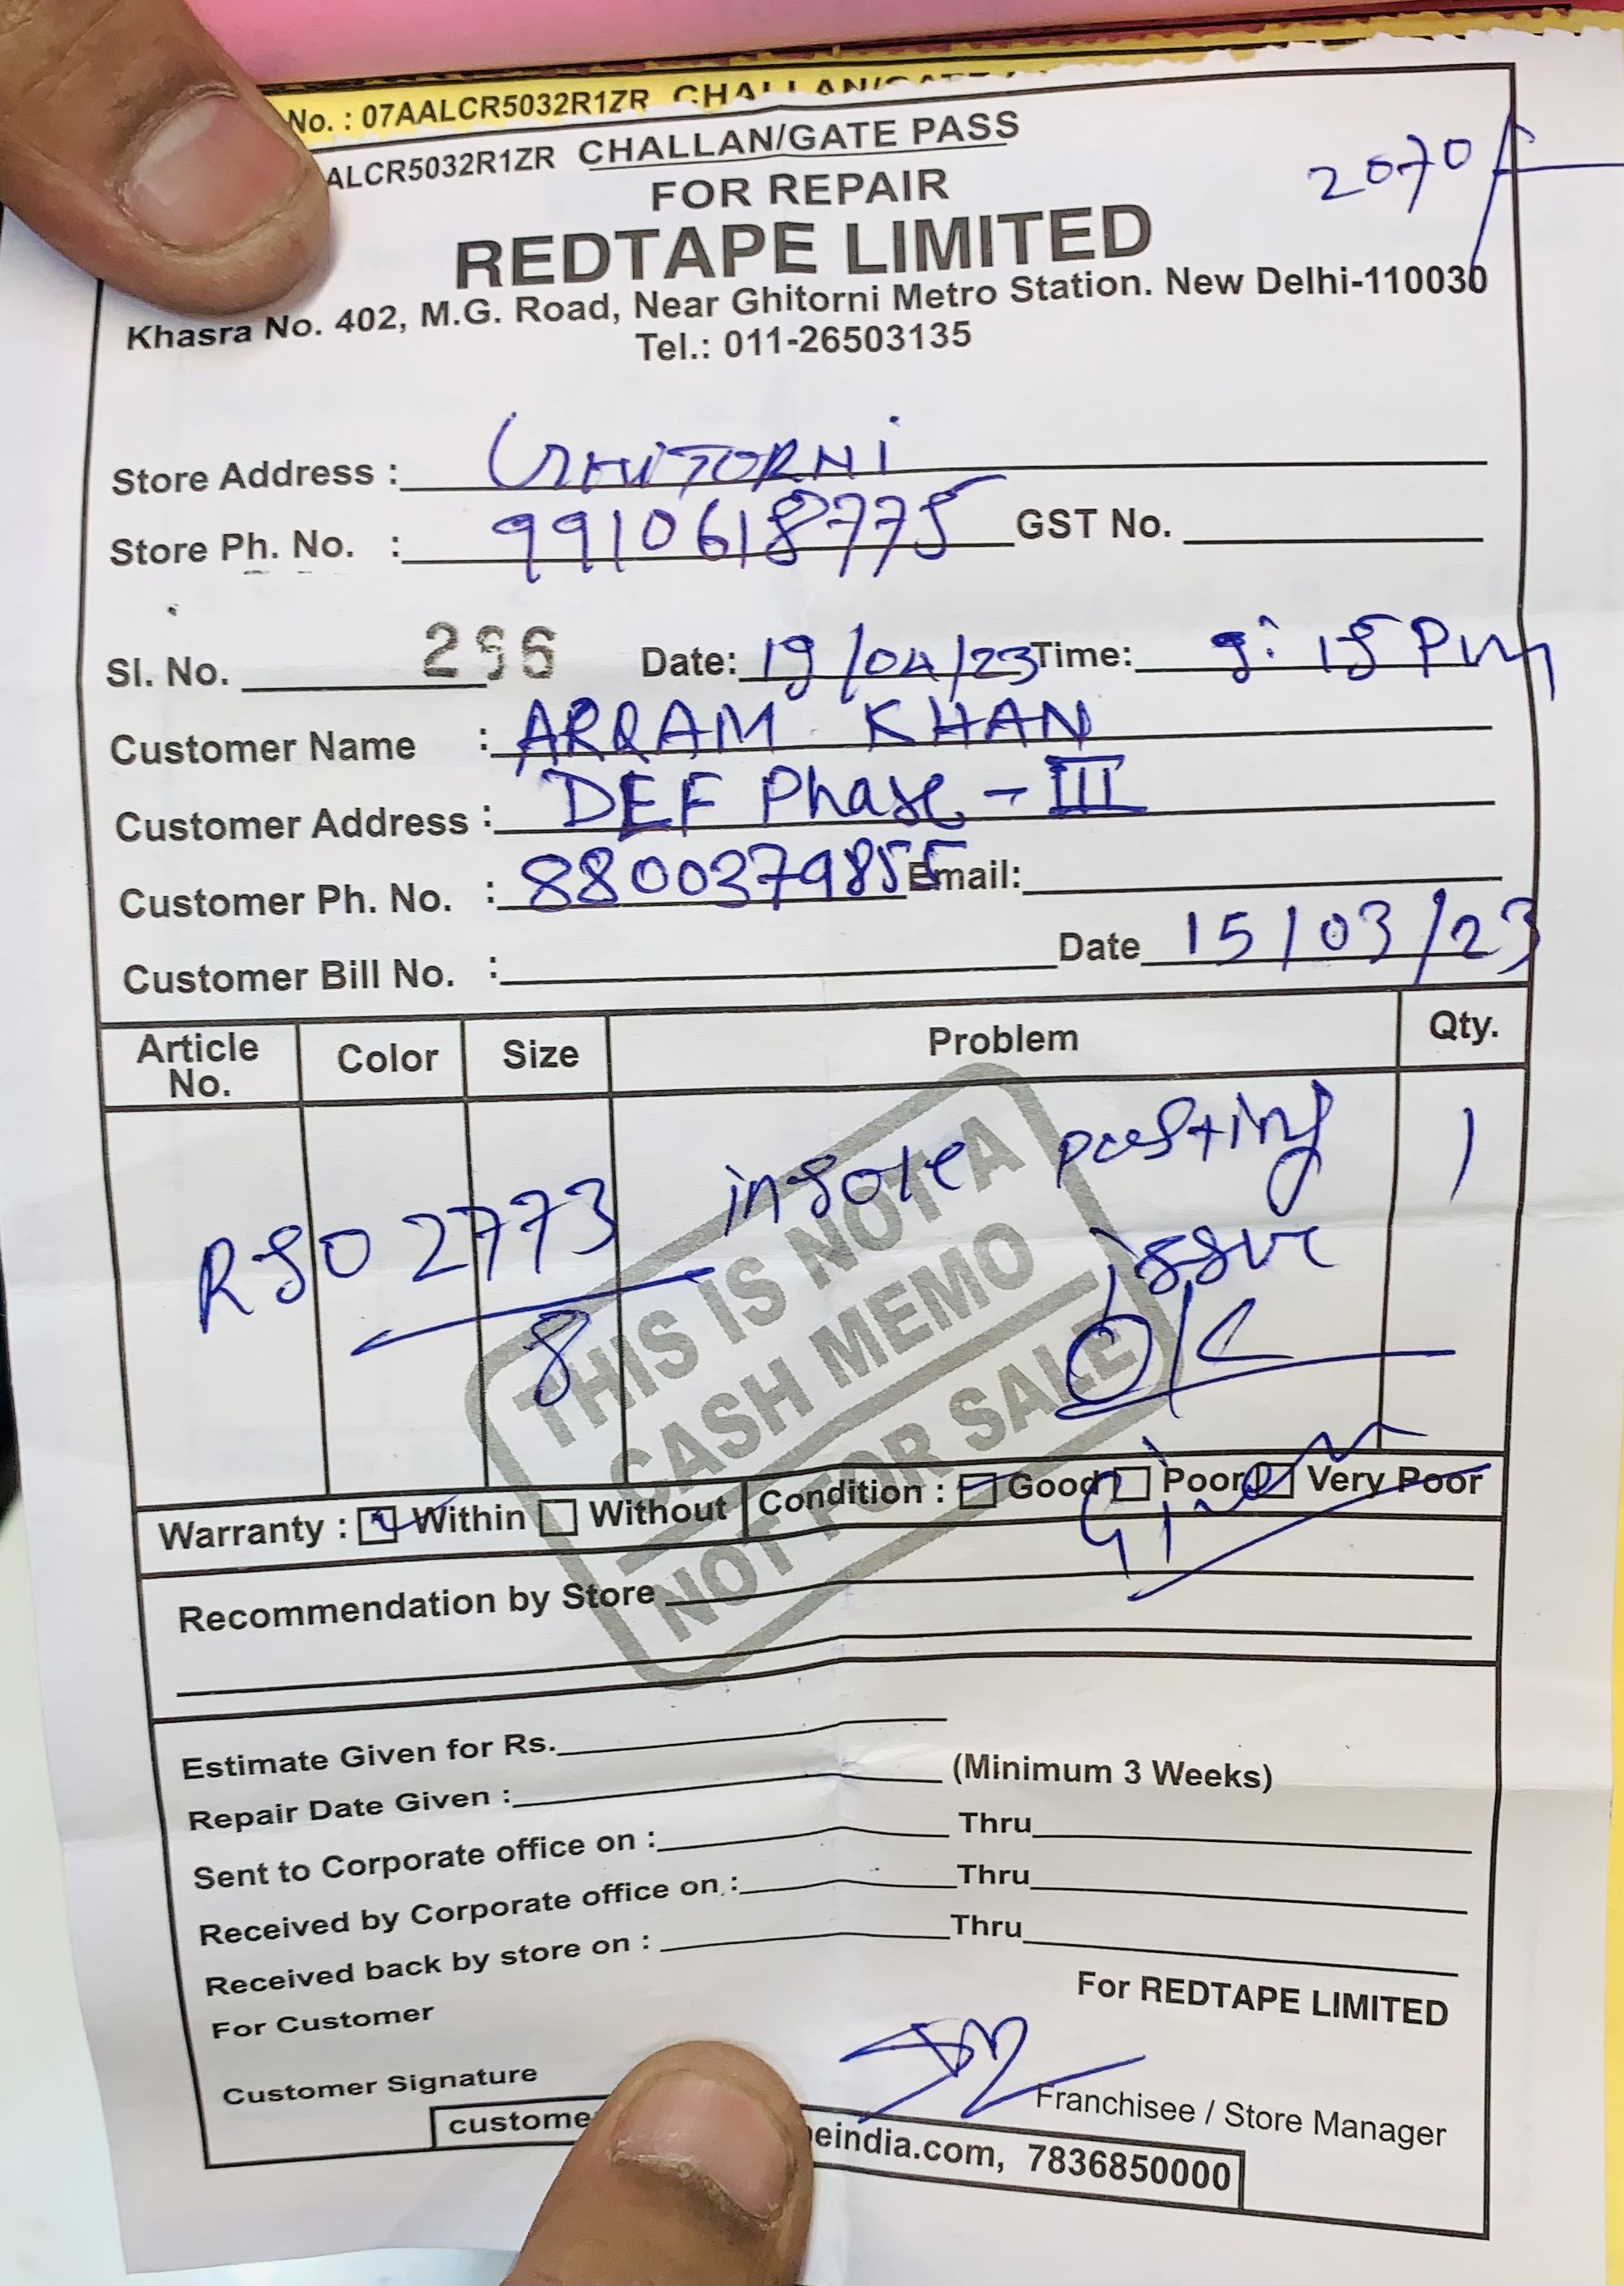 No. : 07AALCR5032R1ZR
ALCR5032R1ZR CHALLAN/GATE PASS
FOR REPAIR
2070/-
REDTAPE LIMITED
Khasra No. 402, M.G. Road, Near Ghitorni Metro Station. New Delhi-110030
Tel.: 011-26503135
Store Address : GHITORNI
Store Ph. No. : 9910618775 GST No.
Sl. No. 296 Date: 19/04/23 Time: 9:15 Pm
Customer Name : ARQAM KHAN
Customer Address : DEF Phase - III
Customer Ph. No. : 8800379855 Email:
Customer Bill No. : Date 15/03/23
Article No. Color Size Problem Qty.
RSO2773 insole pasting 1
issue
8 OK
THIS IS NOT A
CASH MEMO
NOT FOR SALE
Warranty : Within Without Condition : Good Poor Very Poor
Given
Recommendation by Store
Estimate Given for Rs.
Repair Date Given : (Minimum 3 Weeks)
Sent to Corporate office on : Thru
Received by Corporate office on : Thru
Received back by store on : Thru
For Customer For REDTAPE LIMITED
Customer Signature Franchisee / Store Manager
custome eindia.com, 7836850000